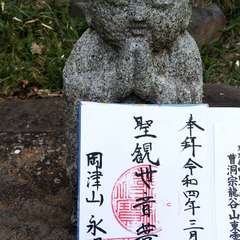 奉拝 令和四年三月
聖観世音菩
岡津山 永
曹洞宗 龍谷山